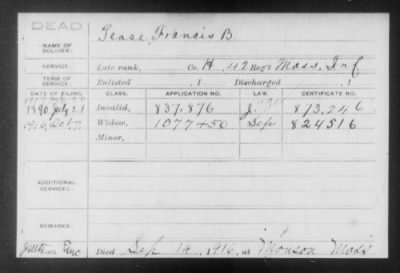 DEAD
NAME OF SOLDIER:
Pease, Francis B
SERVICE:
Late rank, Co. H, 42 Reg't Mass. Inf
TERM OF SERVICE:
Enlisted , 1 Discharged , 1
DATE OF FILING. CLASS. APPLICATION NO. LAW. CERTIFICATE NO.
1890 July 21 Invalid, 837,876 J. 873,246
Widow, 1077450 Sep 824516
Minor,
ADDITIONAL SERVICES:
REMARKS:
Died Sep 14, 1916, at Monson Mass